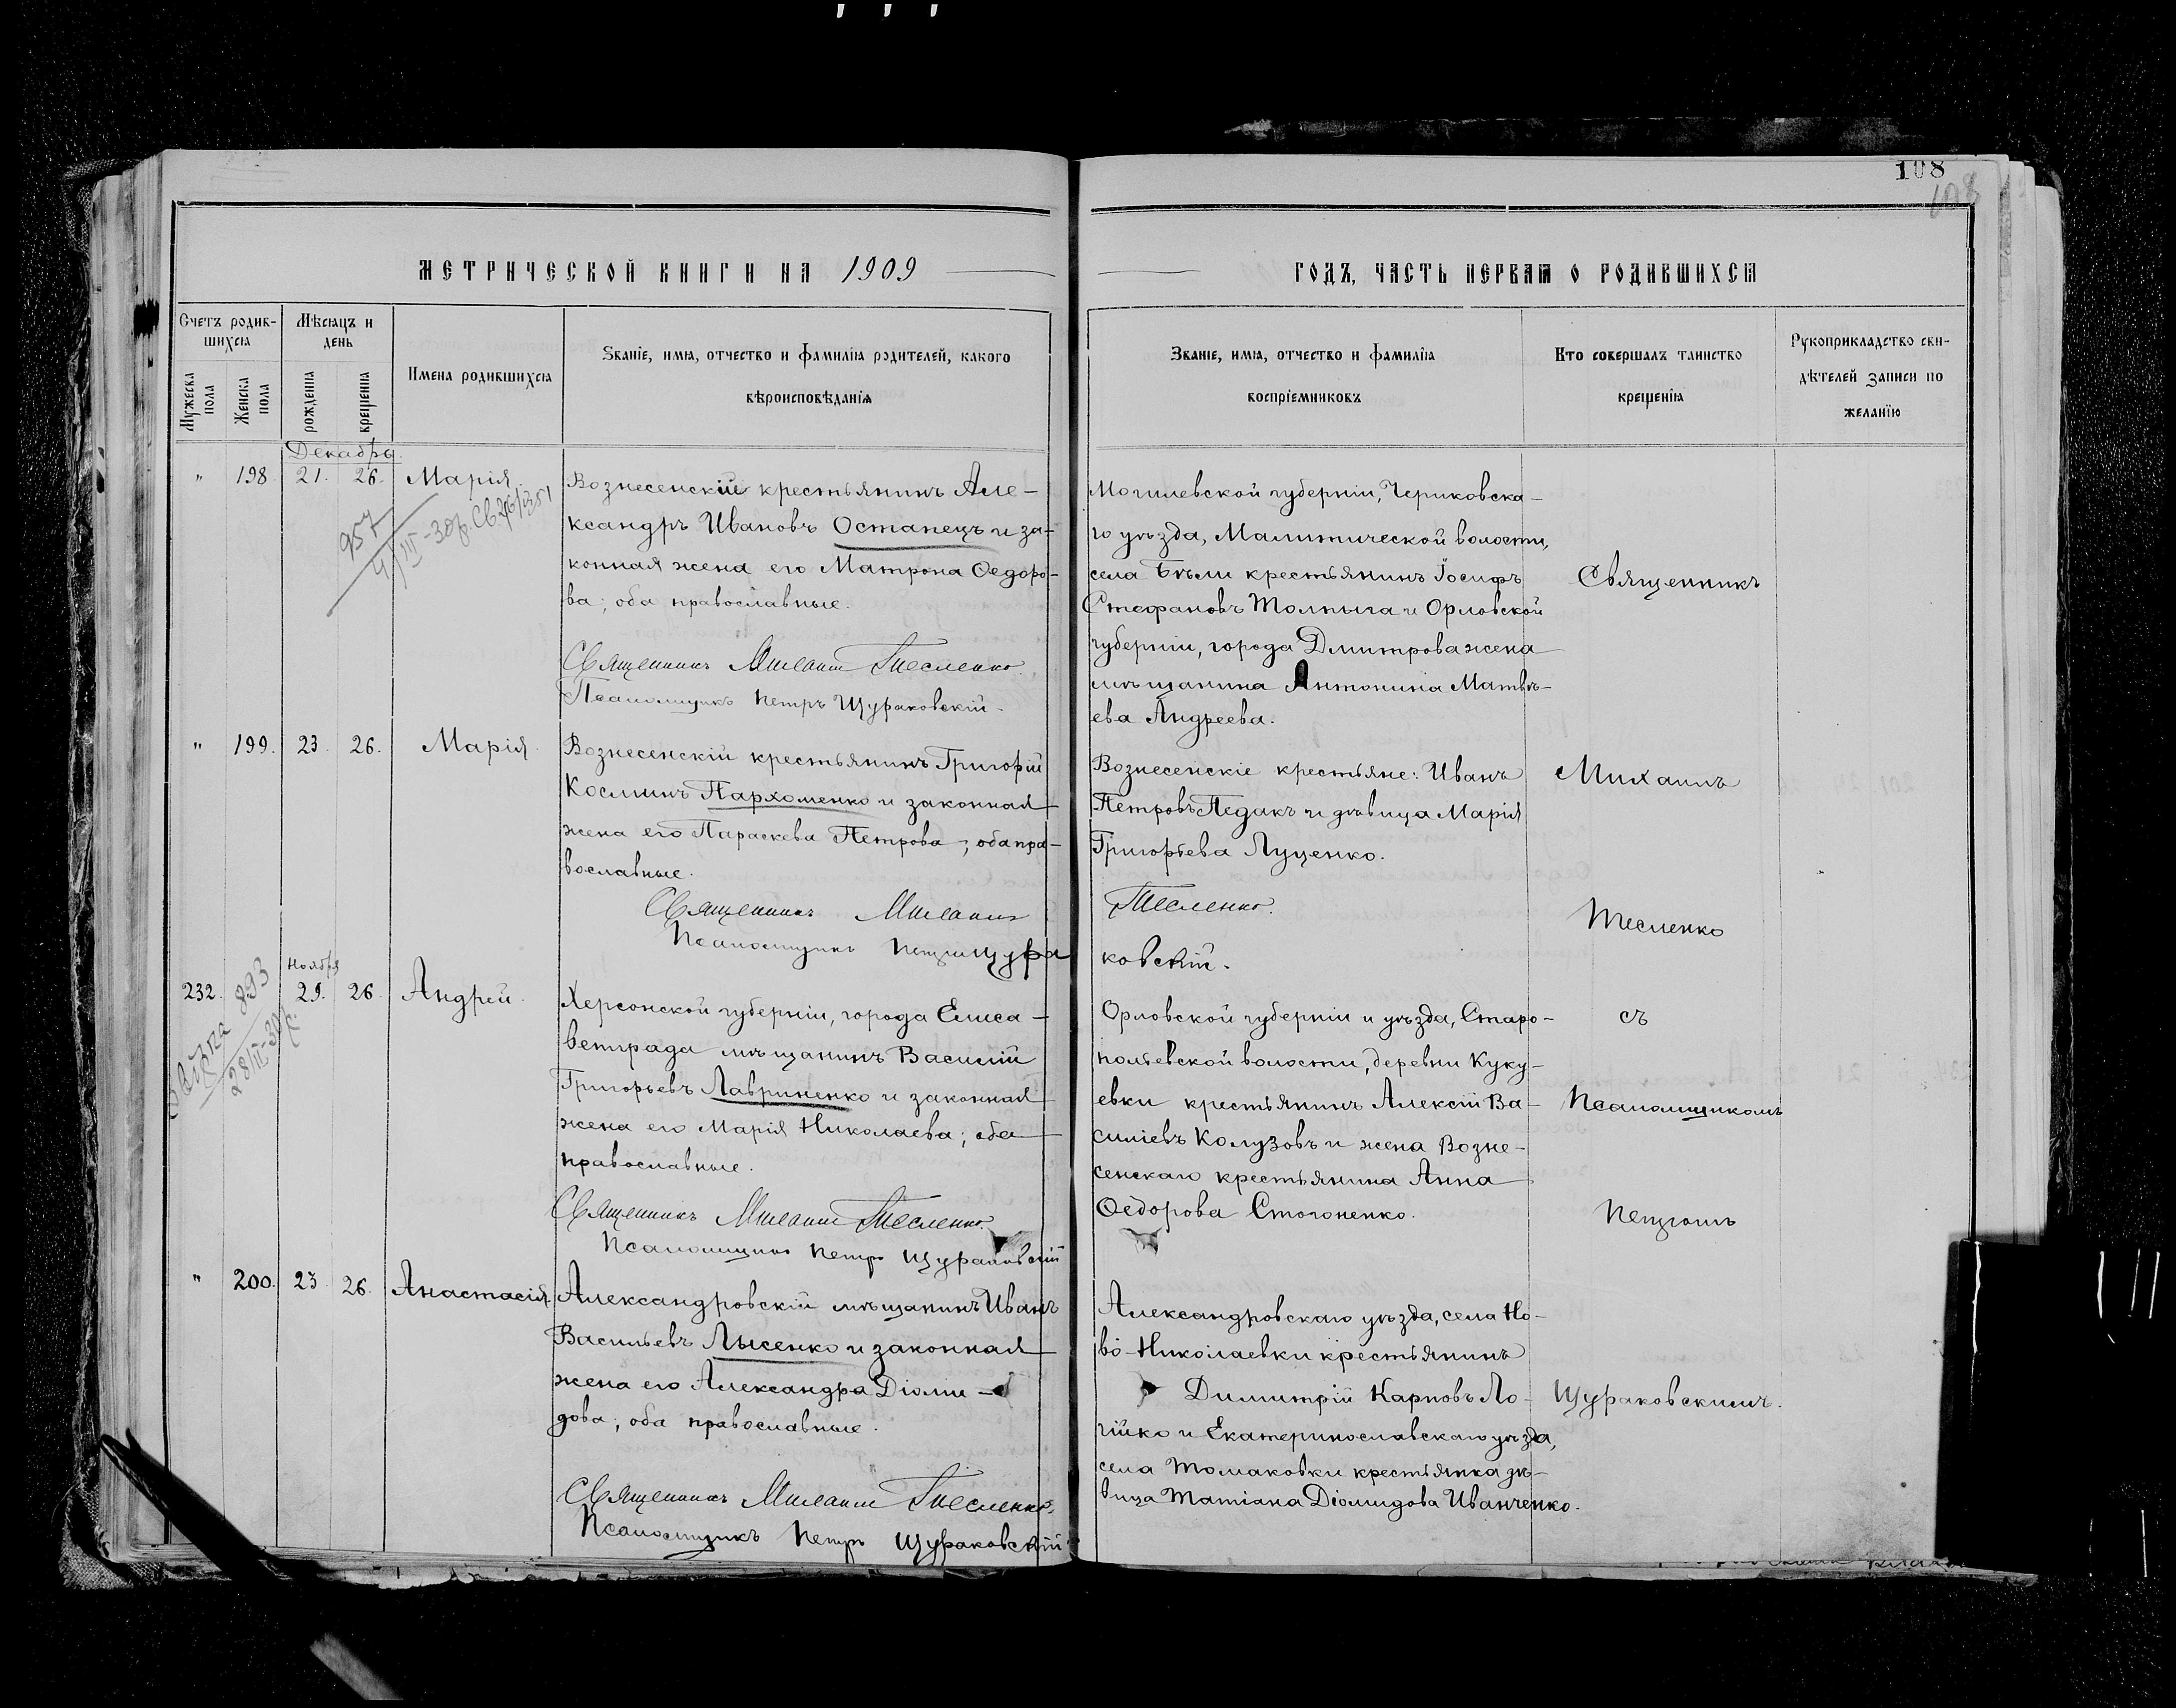 108
108
МЕТРИЧЕСКОЙ КНИГИ НА 1909
ГОДЪ, ЧАСТЬ ПЕРВАЯ О РОДИВШИХСЯ
Счетъ родив-
шихся
Мужеска
пола
Женска
пола
Мѣсяцъ и
день
рожденія
крещенія
Имена родившихся
Званіе, имя, отчество и фамилія родителей, какого
вѣроисповѣданія
Званіе, имя, отчество и фамилія
воспріемниковъ
Кто совершалъ таинство
крещенія
Рукоприкладство сви-
дѣтелей записи по
желанію
Декабрь
" 198 21. 26. Марія.
957
Вознесенскій крестьянинъ Але-
ксандръ Ивановъ Останецъ и за-
конная жена его Матрона Ѳедоро-
ва; оба православные.
Священникъ Михаилъ Тесленко.
Псаломщикъ Петръ Щураковскій.
Могилевской губерніи, Чериковска-
го уѣзда, Малитической волости,
села Бѣли крестьянинъ Іосифъ
Стефановъ Толпыга и Орловской
губерніи, города Дмитрова жена
мѣщанина Антонина Матвѣ-
ева Андреева.
" 199. 23. 26. Марія.
Вознесенскій крестьянинъ Григорій
Косминъ Пархоменко и законная
жена его Параскева Петрова; оба пра-
вославные.
Священникъ Михаилъ
Псаломщикъ Петръ Щура
Вознесенскіе крестьяне: Иванъ
Петровъ Педакъ и дѣвица Марія
Григорьева Луценко.
Тесленко.
ковскій.
232. Ноября 29. 26. Андрей.
893
Херсонской губерніи, города Елиса-
ветграда мѣщанинъ Василій
Григорьевъ Лавриненко и законная
жена его Марія Николаева; оба
православные.
Священникъ Михаилъ Тесленко.
Псаломщикъ Петръ Щураковскій
Орловской губерніи и уѣзда, Старо-
польевской волости, деревни Куку-
евки крестьянинъ Алексій Ва-
силіевъ Колузовъ и жена Возне-
сенскаго крестьянина Анна
Ѳедорова Стогоненко.
" 200. 23. 26. Анастасія.
Александровскій мѣщанинъ Иванъ
Васильевъ Лысенко и законная
жена его Александра Діоми-
дова; оба православные.
Священникъ Михаилъ Тесленко.
Псаломщикъ Петръ Щураковскій
Александровскаго уѣзда, села Но-
во-Николаевки крестьянинъ
Димитрій Карповъ Ло-
гійко и Екатеринославскаго уѣзда,
села Томаковки крестьянка дѣ-
вица Татіана Діомидова Иванченко.
Священникъ
Михаилъ
Тесленко
съ
Псаломщикомъ
Петромъ
Щураковскимъ.